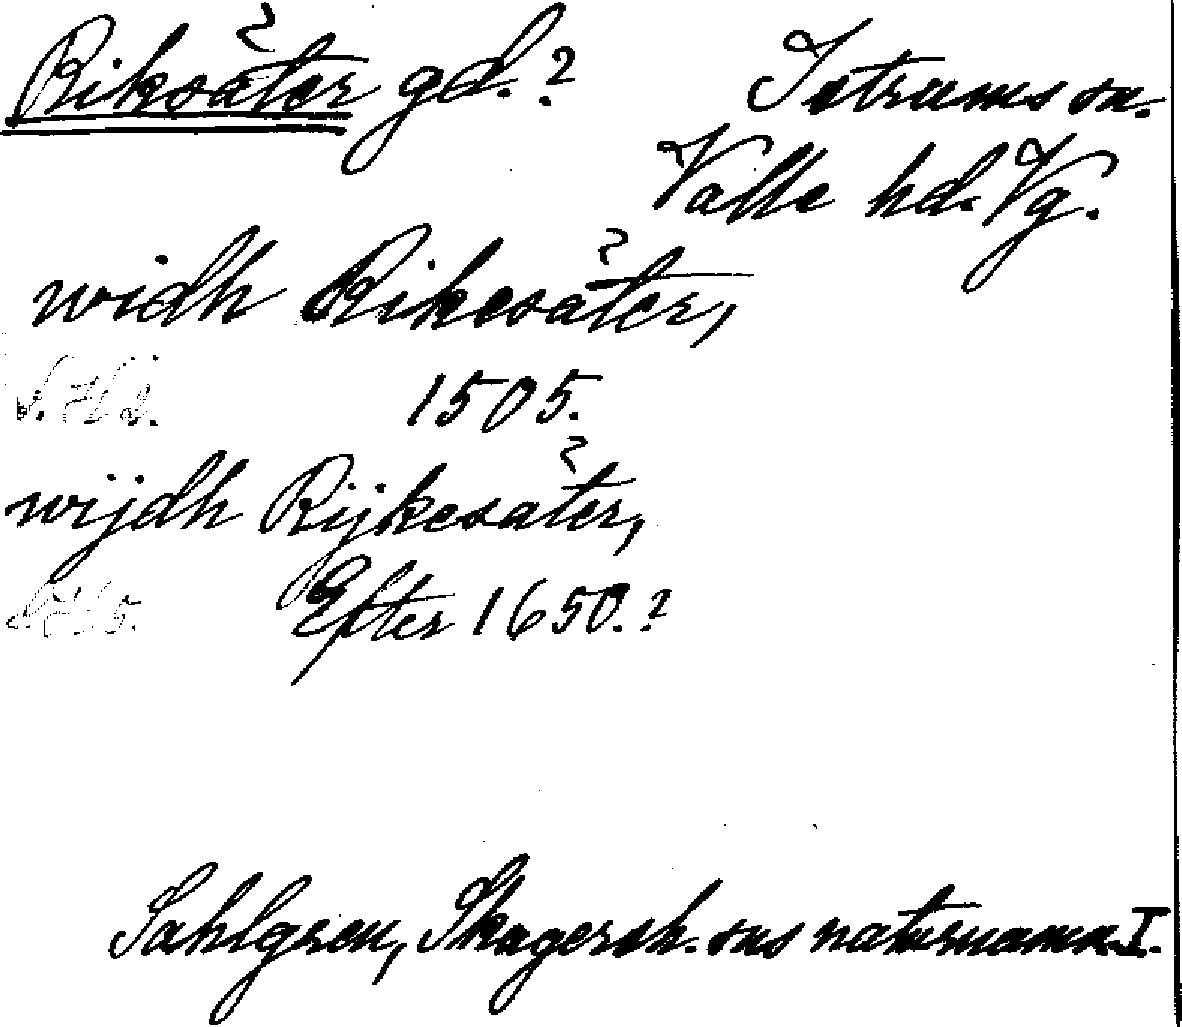 Riksäter gd.? Istrums sn.
Valle hd. Vg.
widh Rikesäter,
1505.
wijdh Rijkesäter,
Efter 1650.?
Sahlgren, Skagersh. sns naturnamn. I.